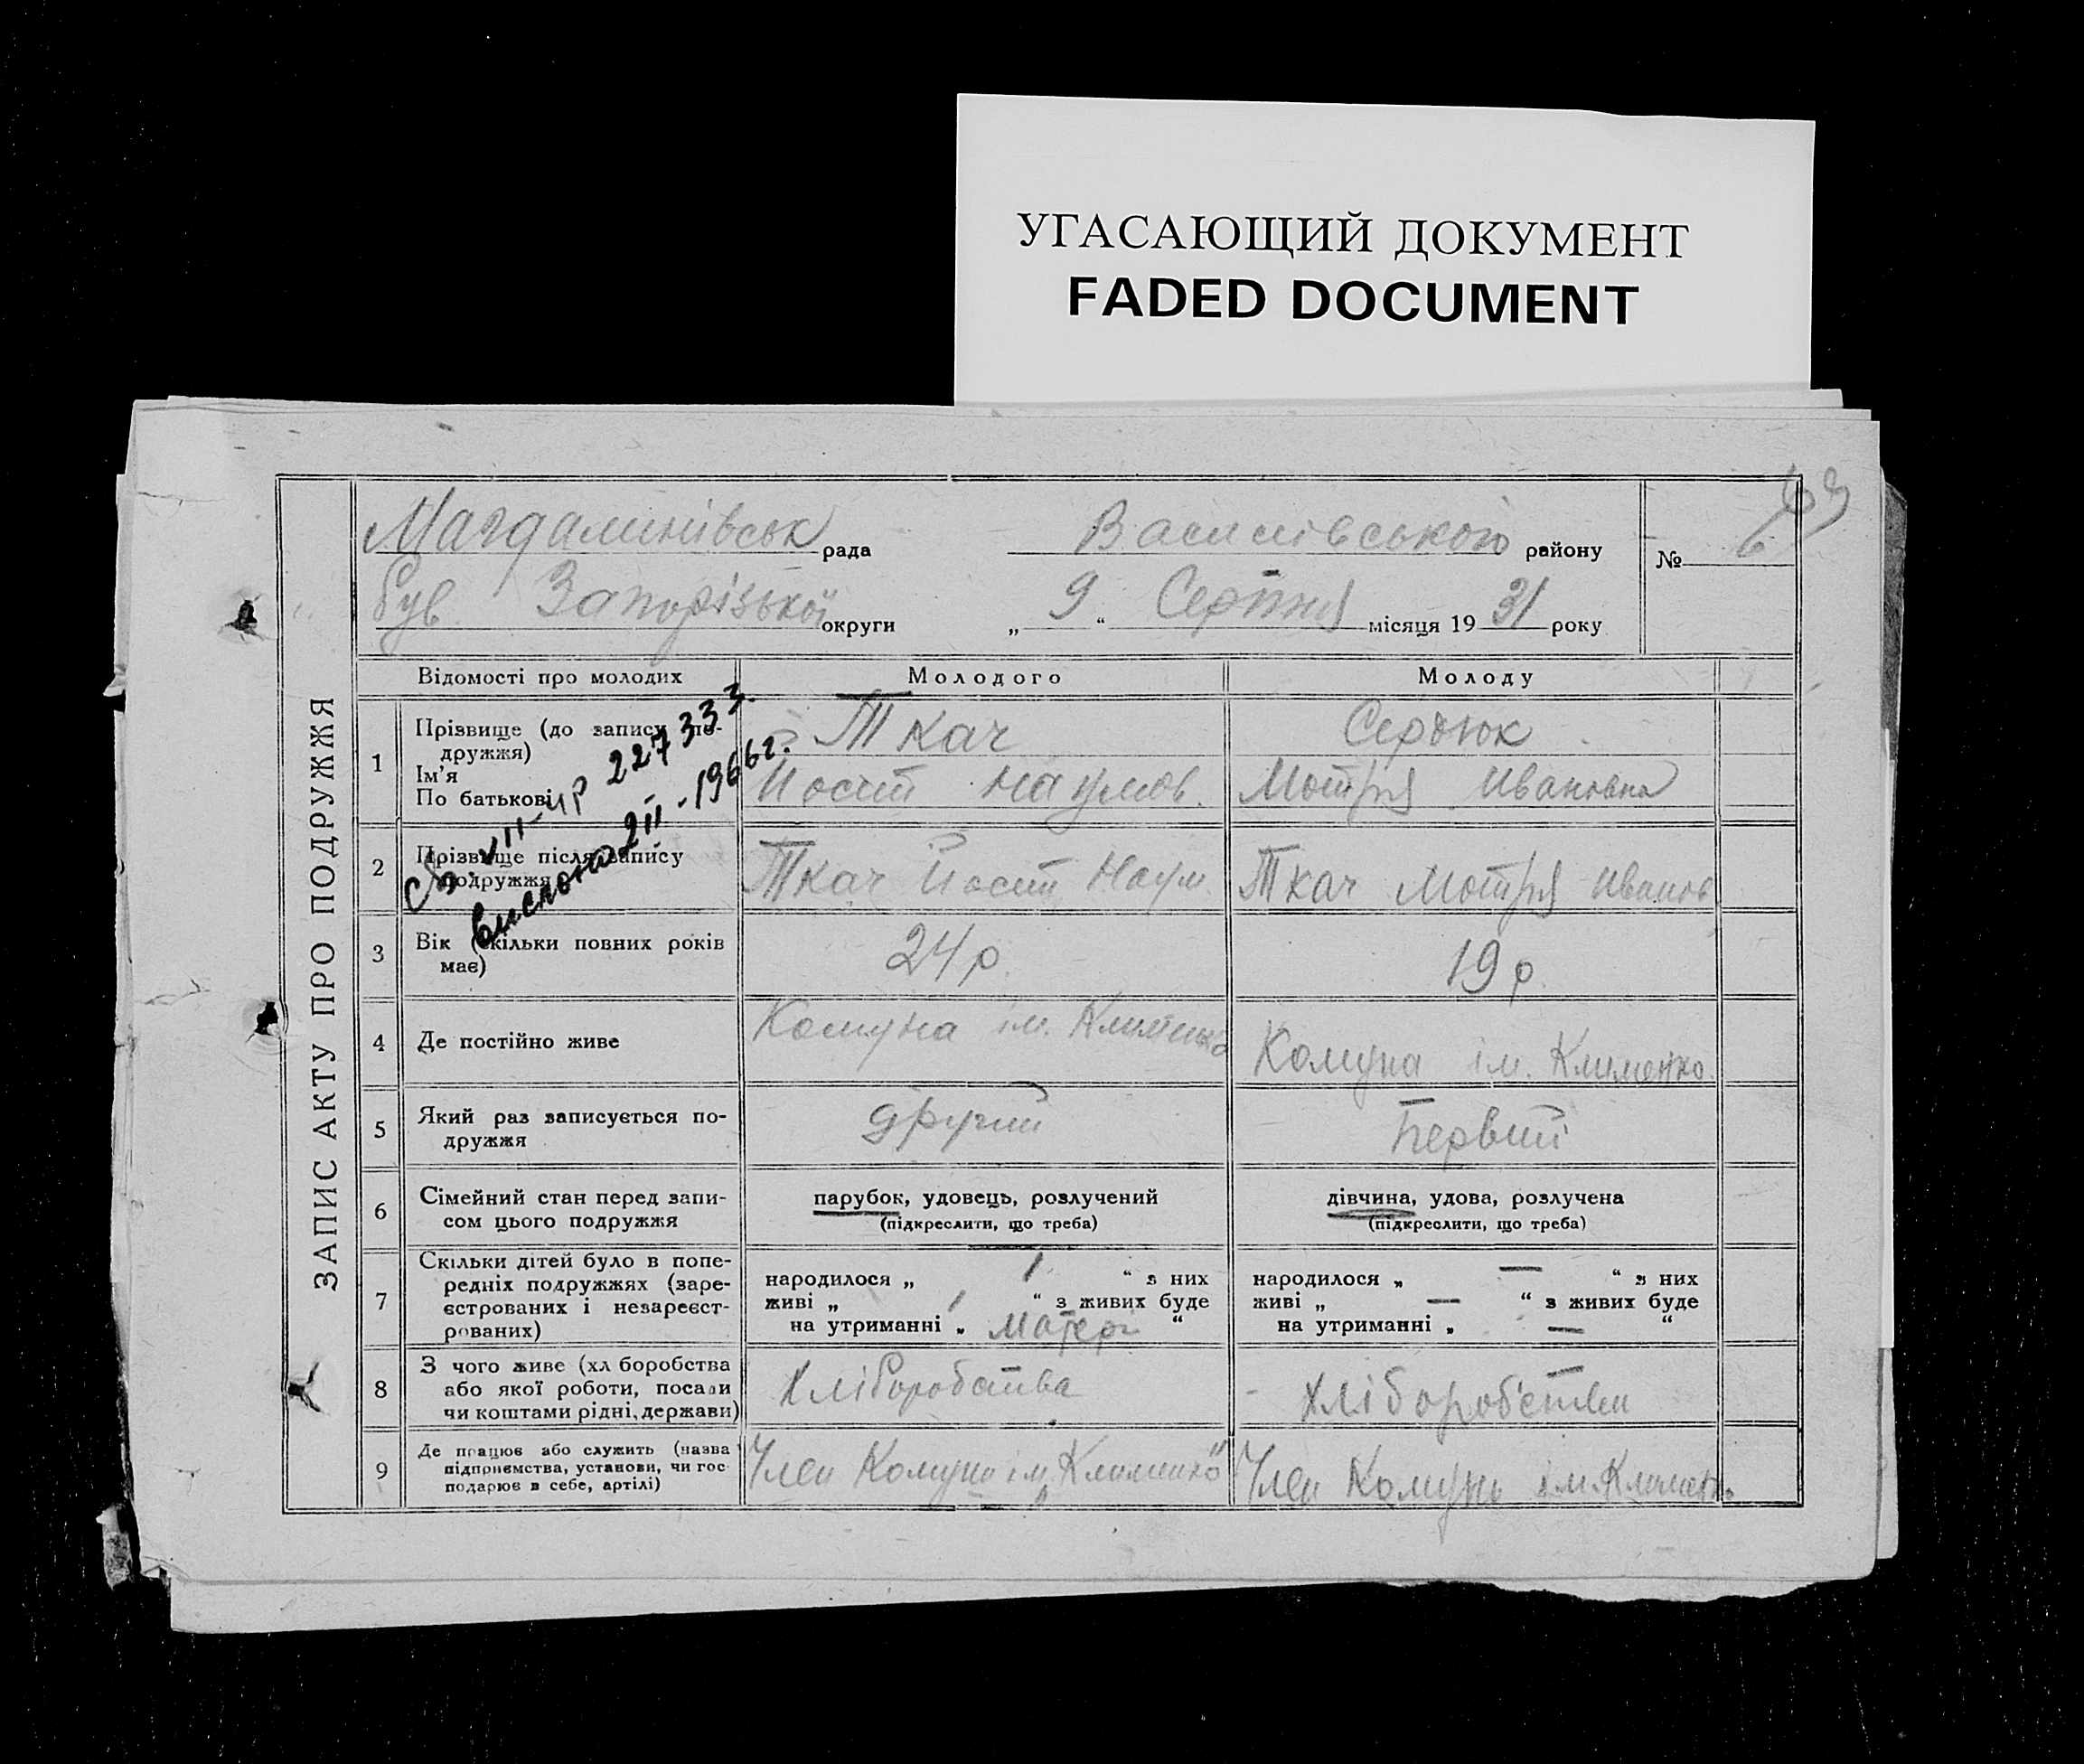 УГАСАЮЩИЙ ДОКУМЕНТ
FADED DOCUMENT
69
Магдалинівськ рада Василівського району № 6
був Запорізької округи „ 9 “ Серпня місяця 19 31 року
ЗАПИС АКТУ ПРО ПОДРУЖЖЯ
Відомості про молодих Молодого Молоду
1 Прізвище (до запису по-
дружжя) Ткач Сердюк
Ім'я
По батькові Йосип Наумов. Мотря Ивановна
св. VII-ЧР 227333.
выслано 2 II - 1966 г.
2 Прізвище після запису
подружжя Ткач Йосип Наум. Ткач Мотря Иванов
3 Вік (скільки повних років
має) 24 р. 19 р.
4 Де постійно живе Комуна ім. Клименко Комуна ім. Клименко
5 Який раз записується по-
дружжя другий Первий
6 Сімейний стан перед запи-
сом цього подружжя парубок, удовець, розлучений дівчина, удова, розлучена
(підкреслити, що треба) (підкреслити, що треба)
7 Скільки дітей було в попе-
редніх подружжях (заре-
єстрованих і незареєст-
рованих)
народилося „ 1 “ з них народилося „ — “ з них
живі „ 1 “ з живих буде живі „ — “ з живих буде
на утриманні „ матері “ на утриманні „ — “
8 З чого живе (хл боробства
або якої роботи, посади
чи коштами рідні, держави) Хліборобства - хліборобства
9 Де працює або служить (назва
підприємства, установи, чи гос
подарює в себе, артілі) Член Комуни ім. Клименко Член Комуни ім. Климен.